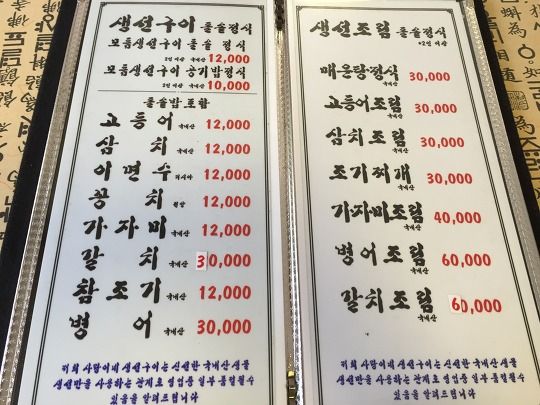 생선구이 돌솥정식
모듬생선구이 돌솥 정식
2인 이상 국내산 12,000
모듬생선구이 공기밥정식
2인 이상 국내산 10,000
돌솥밥 포함
고등어 국내산 12,000
삼치 국내산 12,000
이면수 러시아 12,000
꽁치 원양 12,000
가자미 국내산 12,000
갈치 국내산 30,000
참조기 국내산 12,000
병어 국내산 30,000
저희 사랑이네 생선구이는 신선한 국내산 생물
생선만을 사용하는 관계로 영업중 일부 품절될수
있음을 알려드립니다
생선조림 돌솥정식
*2인 이상
매운탕정식 30,000
고등어조림 국내산 30,000
삼치 조림 국내산 30,000
조기찌개 국내산 30,000
가자미조림 국내산 40,000
병어조림 국내산 60,000
갈치조림 국내산 60,000
저희 사랑이네 생선구이는 신선한 국내산 생물
생선만을 사용하는 관계로 영업중 일부 품절될수
있음을 알려드립니다